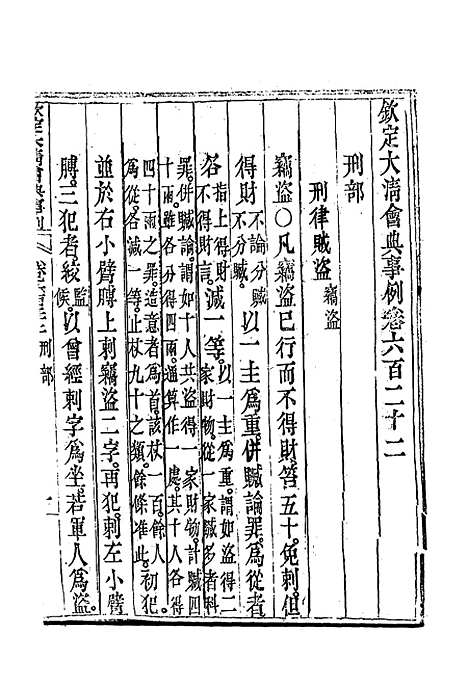 欽定大清會典事例卷六百二十二
刑部
刑律賊盜 竊盜
竊盜○凡竊盜已行而不得財笞五十免刺但
得財不論分贓不分贓以一主爲重併贓論罪爲從者
各指上得財不得財言減一等以一主爲重謂如盜得二家財物從一家贓多者科
罪併贓論謂如十人共盜得一家財物計贓四十兩雖各分得四兩通算作一處其十人各得
四十兩之罪造意者爲首該杖一百餘人爲從各減一等止杖九十之類餘條准此初犯
並於右小臂膊上刺竊盜二字再犯刺左小臂
膊三犯者絞監候以曾經刺字爲坐若軍人爲盜
欽定大清會典事例 卷六百二十二 刑部 一